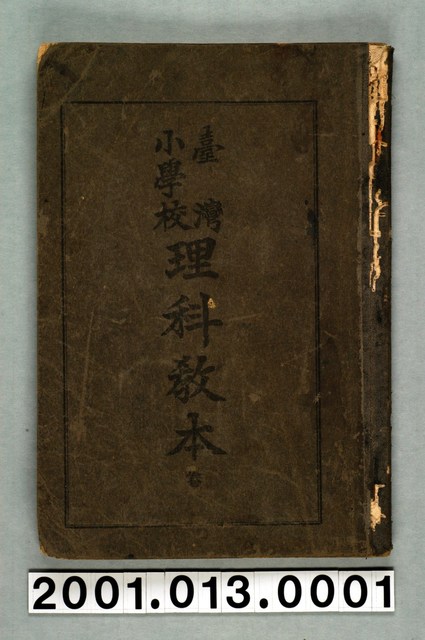 臺灣
小學校
理科教本
卷
2001.013.0001